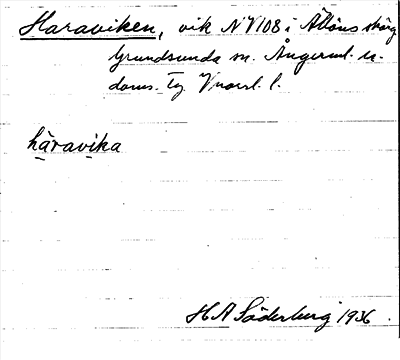 Haraviken, vik NV 108 i Ållöns skärg
Grundsunda sn. Ångerml. n.
doms. Tg Vnorrl. l.
häravika
H A Söderberg 1936.